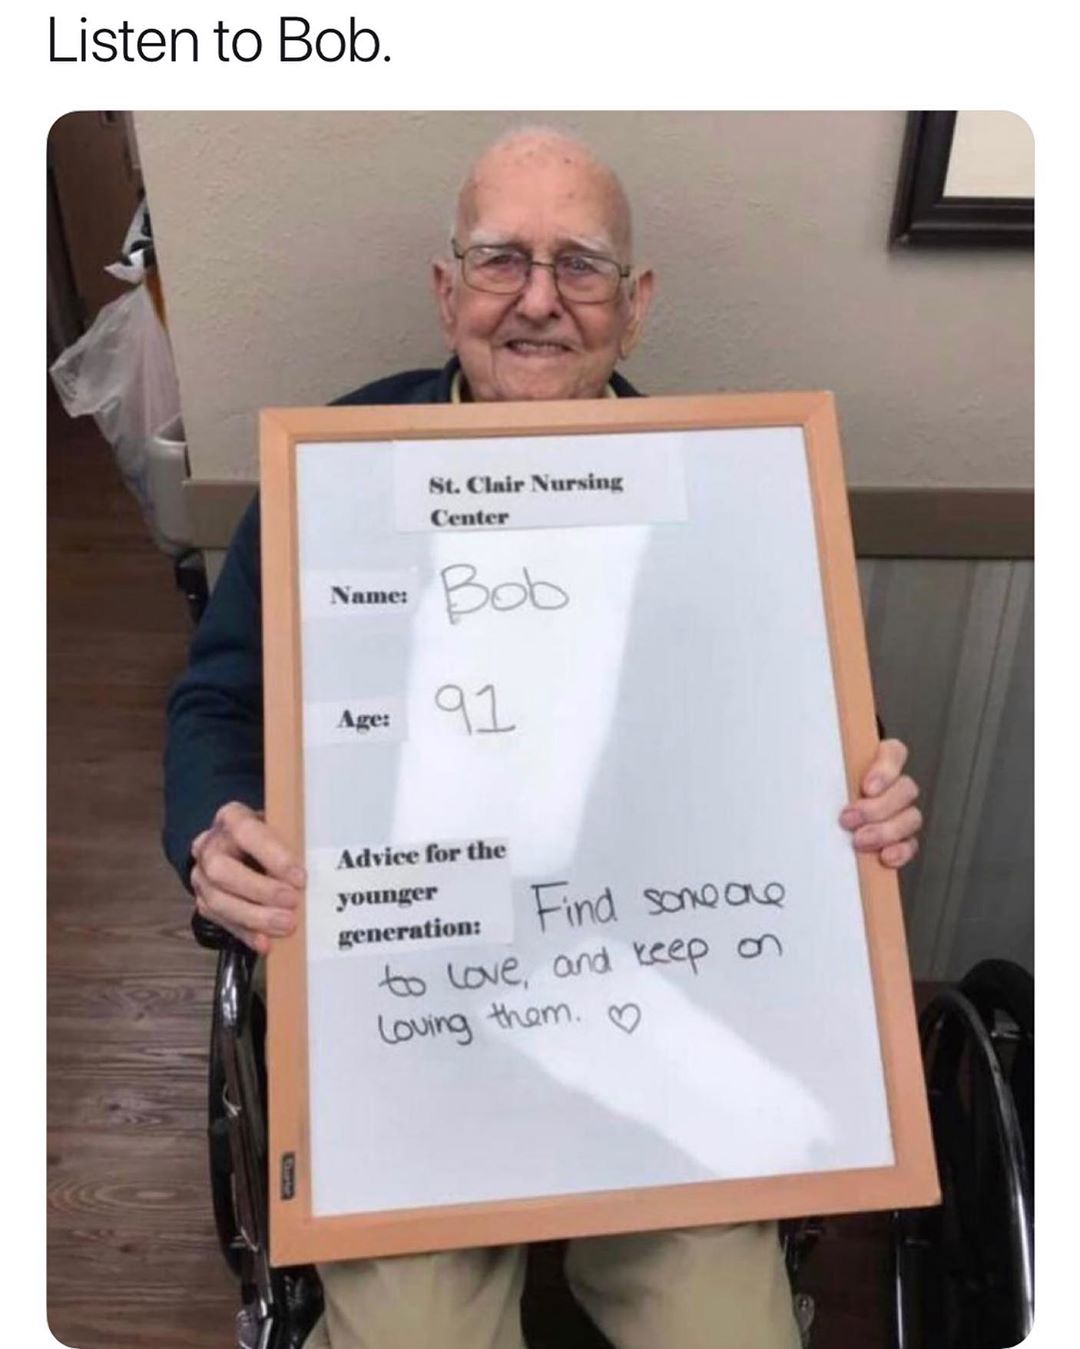 Listen to Bob.
St. Clair Nursing
Center
Name: Bob
Age: 91
Advice for the
younger
generation: Find someone
to love, and keep on
loving them. ♡